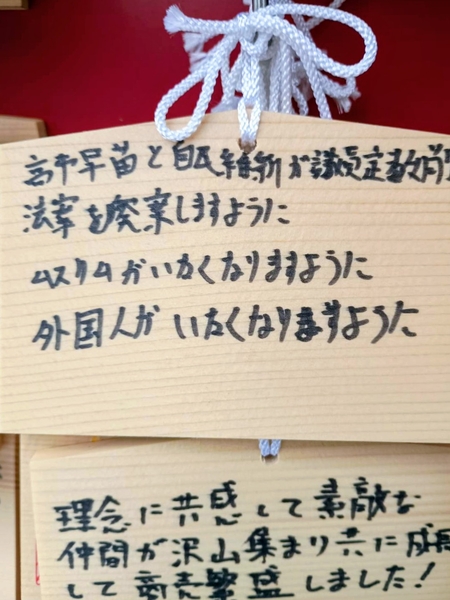 高市早苗と自民維新が議員定数削
法案を廃棄しますように
ムスリムがいなくなりますように
外国人がいなくなりますように
理念に共感して素敵な
仲間が沢山集まり共に成長
して商売繁盛しました!